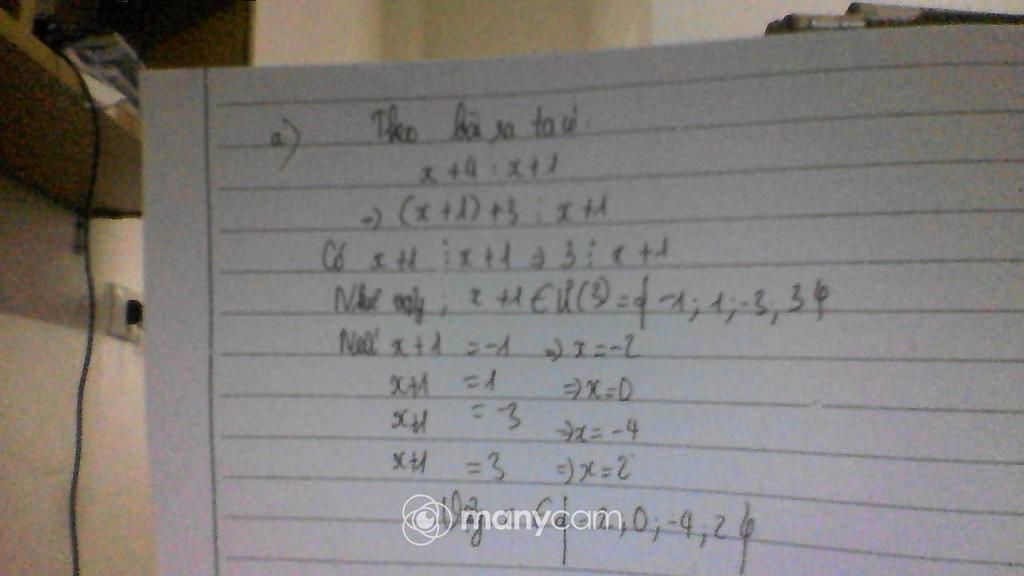 a) Theo bài ra ta có:
x + 4 ⋮ x + 1
⇒ (x + 1) + 3 ⋮ x + 1
Có x + 1 ⋮ x + 1 ⇒ 3 ⋮ x + 1
Như vậy, x + 1 ∈ Ư(3) = { -1; 1; -3, 3 }
Nếu x + 1 = -1 ⇒ x = -2
x + 1 = 1 ⇒ x = 0
x + 1 = -3 ⇒ x = -4
x + 1 = 3 ⇒ x = 2
Vậy ∈ { 2, 0; -4; 2 }
manycam